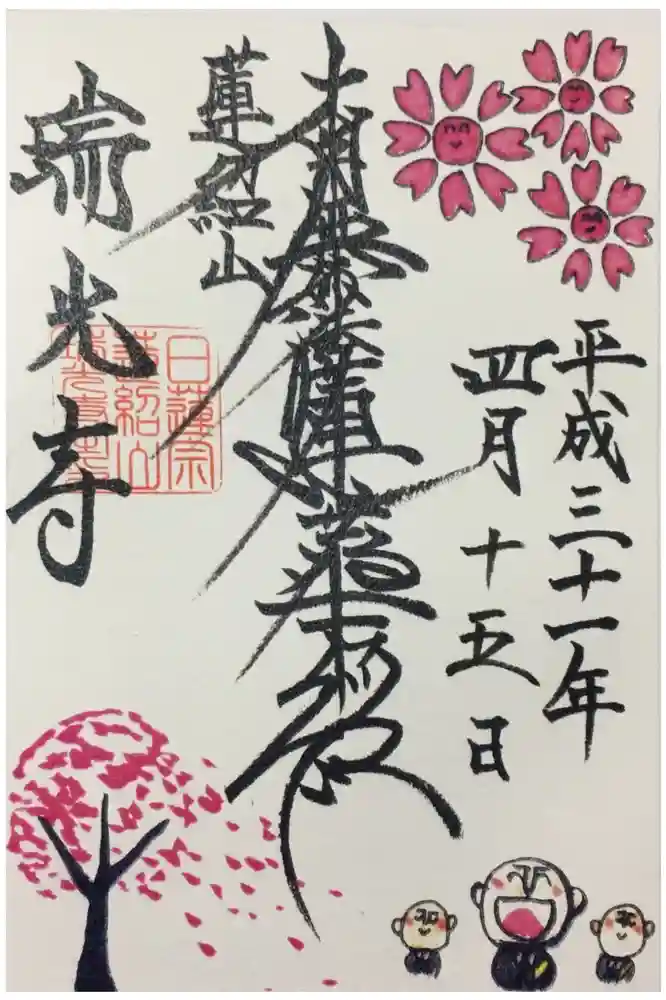 平成三十一年
四月十五日
南無妙法蓮華経
蓮紹山
瑞光寺
日蓮宗
蓮紹山
瑞光寺